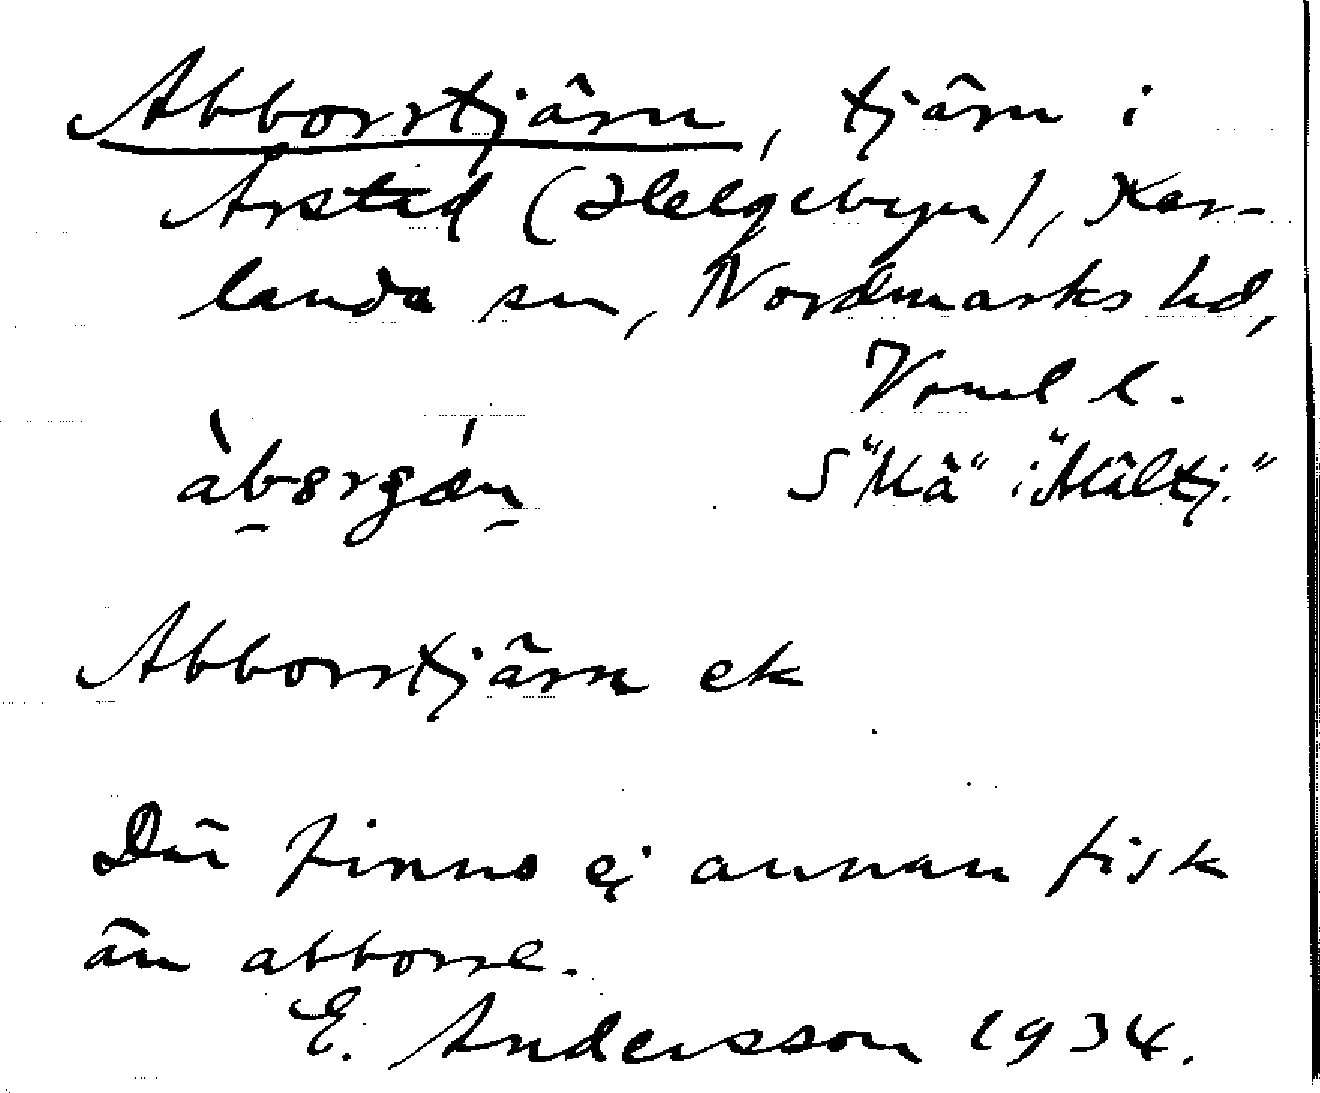 Abborrtjärn, tjärn i
Årstad (Helgebyn), Kar-
landa sn, Nordmarks hd,
Vrml l.
àbɘrgǽn S "Mä" i "Mältj."
Abborrtjärn ek
Där finns ej annan fisk
än abborre.
E. Andersson 1934.